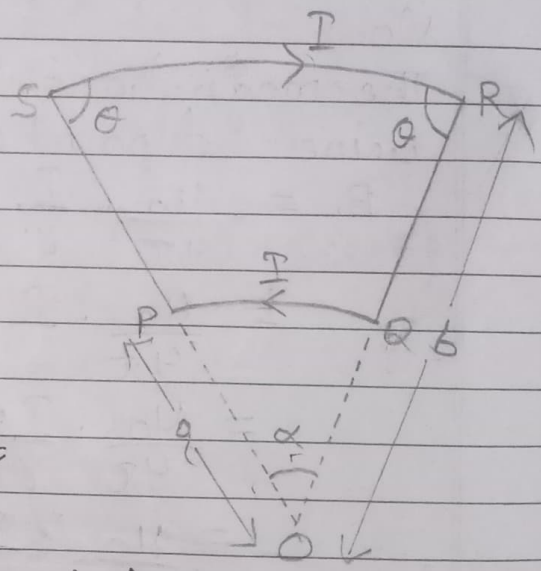 I
S θ θ R
I
P Q b
a α
O